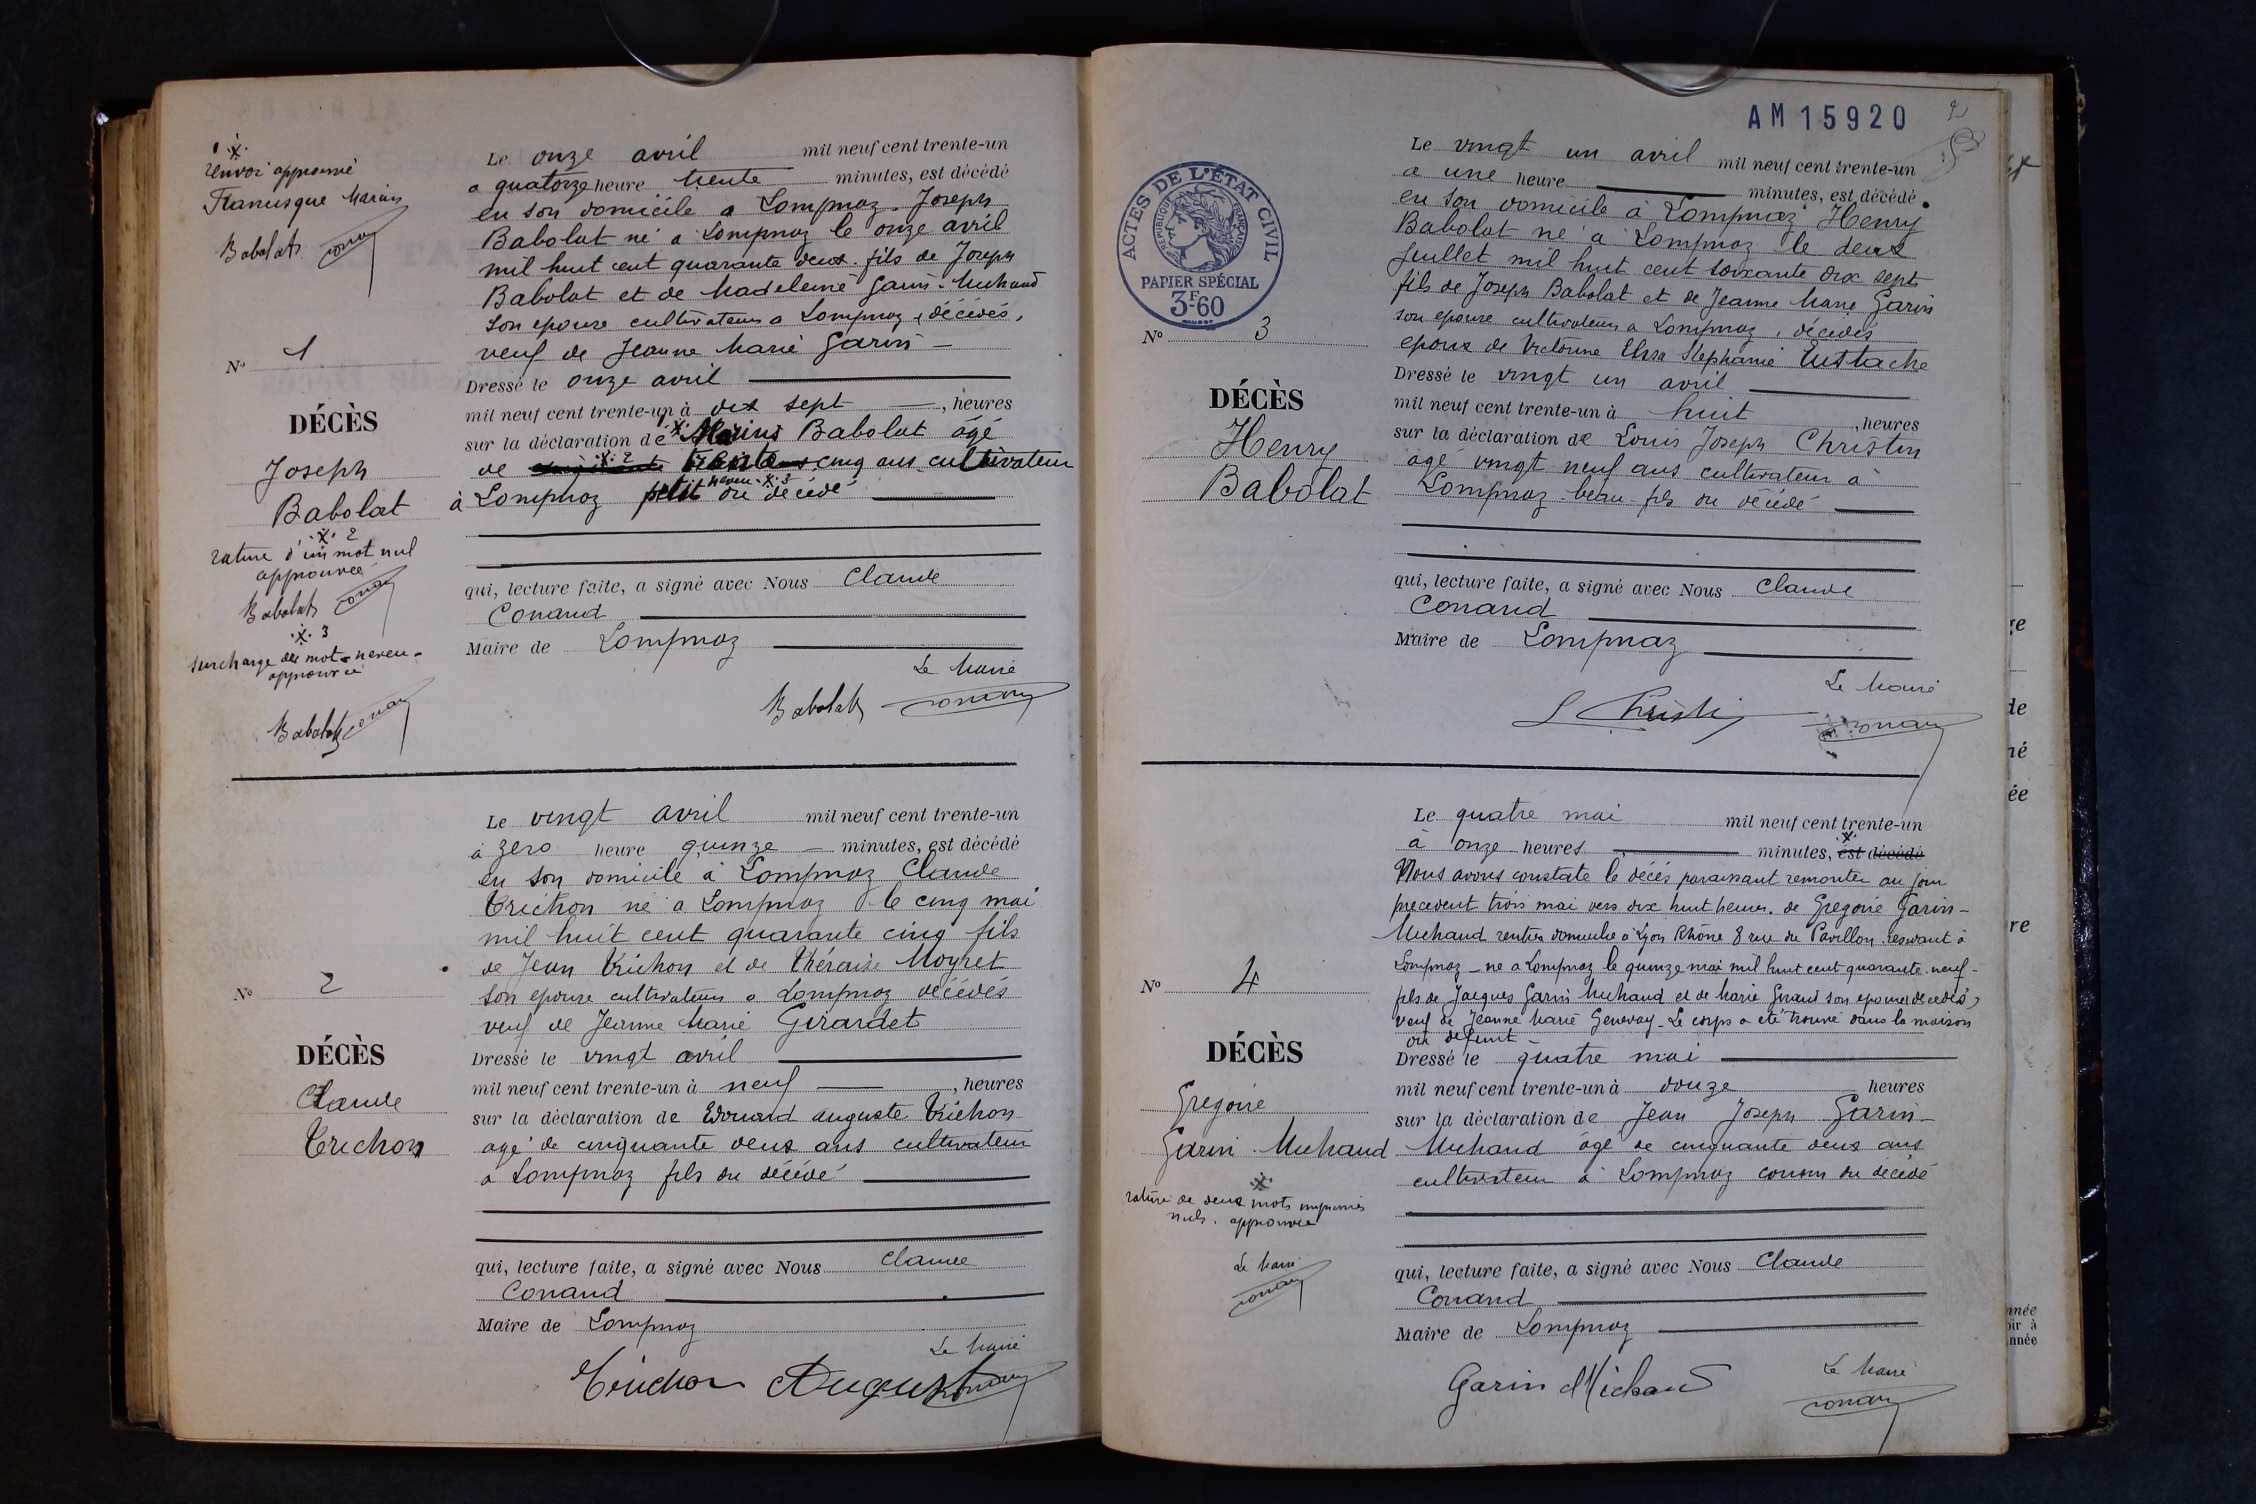 ·X·
renvoi approuvé
Francisque Marius
Babolat Conand
Nº 1
DÉCÈS
Joseph
Babolat
·X· 2
rature d'un mot nul
approuvée
Babolat Conand
·X· 3
surcharge des mots neveu
approuvée
Babolat Conand
Le onze avril mil neuf cent trente-un
a quatorze heure trente minutes, est décédé
en son domicile a Lompnaz Joseph
Babolat né a Lompnaz le onze avril
mil huit cent quarante deux. fils de Joseph
Babolat et de Madeleine Garin-Michaud
son epouse cultivateurs a Lompnaz, décédés,
veuf de Jeanne Marie Garin
Dressé le onze avril
mil neuf cent trente-un à dix sept, heures
sur la déclaration de ·X· Marius Babolat âgé
de ·X· 2 trente cinq ans cultivateur
à Lompnaz petit neveu ·X· 3 du décédé
qui, lecture faite, a signé avec Nous Claude
Conand
Maire de Lompnaz
Le Maire
Babolat Conand
Nº 2
DÉCÈS
Claude
Trichon
Le vingt avril mil neuf cent trente-un
à zéro heure quinze minutes, est décédé
en son domicile à Lompnaz Claude
Trichon né a Lompnaz le cinq mai
mil huit cent quarante cinq fils
de Jean Trichon et de Théraise Moyret
son epouse cultivateurs a Lompnaz décédés
veuf de Jeanne Marie Girardet
Dressé le vingt avril
mil neuf cent trente-un à neuf, heures
sur la déclaration de Edouard auguste Trichon
agé de cinquante deux ans cultivateur
a Lompnaz fils du décédé
qui, lecture faite, a signé avec Nous Claude
Conand
Maire de Lompnaz
Le Maire
Trichon August Conand
AM15920
2
ACTES DE L'ÉTAT CIVIL
RÉPUBLIQUE FRANÇAISE
PAPIER SPÉCIAL
3F60
Nº 3
DÉCÈS
Henry
Babolat
Le vingt un avril mil neuf cent trente-un
a une heure minutes, est décédé
en son domicile à Lompnaz Henry
Babolat né a Lompnaz le deux
Juillet mil huit cent soixante dix sept
fils de Joseph Babolat et de Jeanne Marie Garin
son epouse cultivateurs a Lompnaz, décédés
epoux de Victorine Elisa Stephanie Eustache
Dressé le vingt un avril
mil neuf cent trente-un à huit, heures
sur la déclaration de Louis Joseph Christin
agé vingt neuf ans cultivateur à
Lompnaz beau-fils du décédé
qui, lecture faite, a signé avec Nous Claude
Conand
Maire de Lompnaz
Le Maire
L Christin Conand
Nº 4
DÉCÈS
Gregoire
Garin-Michaud
·X·
rature de deux mots imprimés
nuls. approuvée
Le Maire
Conand
Le quatre mai mil neuf cent trente-un
à onze heures minutes, ·X· est décédé
Nous avons constaté le décés paraissant remonter au jour
precedent trois mai vers dix huit heures. de Gregoire Garin-
Michaud rentier domicilié à Lyon Rhône 8 rue du Pavillon residant à
Lompnaz - né a Lompnaz le quinze mai mil huit cent quarante-neuf-
fils de Jacques Garin Michaud et de Marie Guraud son epouse, décédés,
veuf de Jeanne Marie Genevay - Le corps a eté trouvé dans la maison
du défunt
Dressé le quatre mai
mil neuf cent trente-un à douze heures
sur la déclaration de Jean Joseph Garin
Michaud âgé de cinquante deux ans
cultivateur à Lompnaz cousin du décédé
qui, lecture faite, a signé avec Nous Claude
Conand
Maire de Lompnaz
Le Maire
Garin Michaud Conand